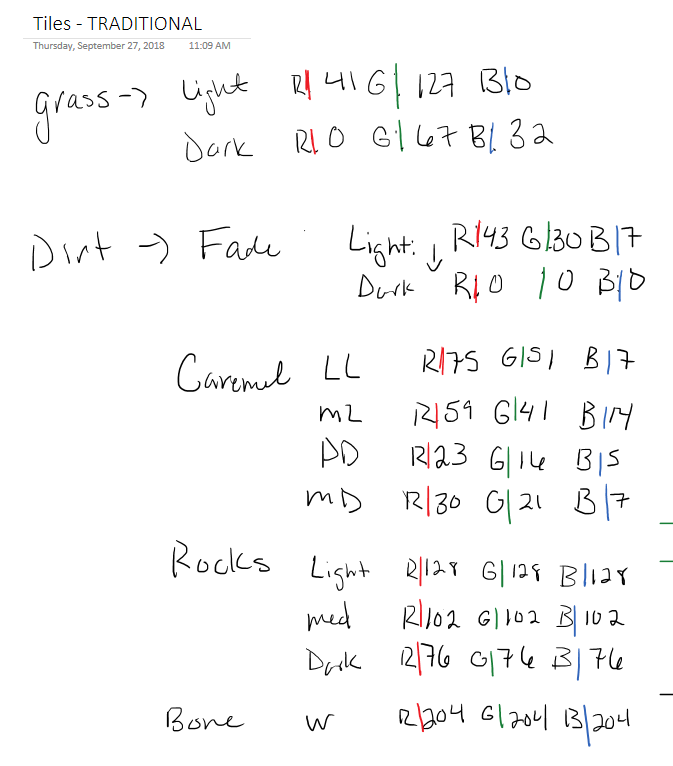 Tiles - TRADITIONAL
Thursday, September 27, 2018 11:09 AM
grass -> Light R| 41 G| 127 B|0
Dark R| 0 G| 67 B| 32
Dirt -> Fade Light: ↓ R|43 G|30 B|7
Dark R| 0 | 0 B|0
Caremel LL R|75 G|51 B|7
ML R|59 G|41 B|14
DD R|23 G|16 B|5
MD R|30 G|21 B|7
Rocks Light R|128 G|128 B|128
med R|102 G|102 B|102
Dark R|76 G|76 B|76
Bone W R|204 G|204 B|204